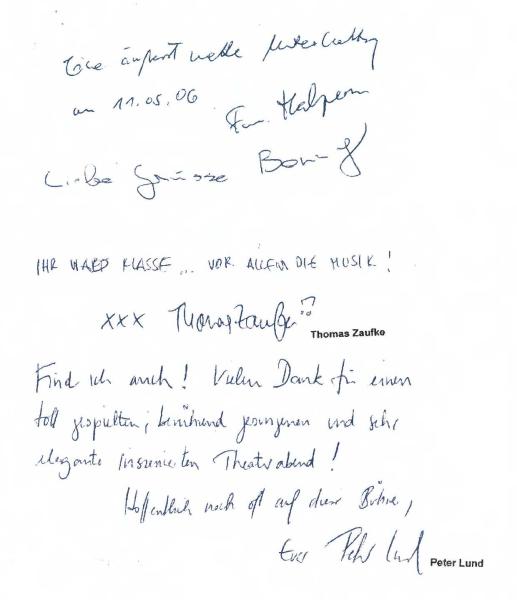 Eine äußerst nette Unterhaltung
am 11.05.06
Fam. Halpern
Liebe Grüsse
IHR WARD KLASSE... VOR ALLEM DIE MUSIK!
xxx Thomas Zaufke
Thomas Zaufke
Find ich auch! Vielen Dank für einen
toll gespielten, berührend gesungenen und sehr
elegante inszenierten Theaterabend!
Hoffentlich noch oft auf dieser Bühne,
Euer Peter Lund
Peter Lund